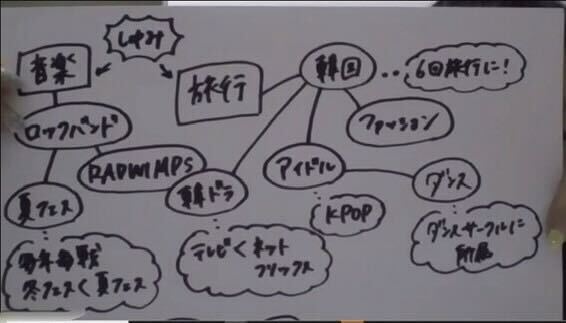 しゅみ
音楽
旅行
韓国
6回旅行に!
ロックバンド
ファッション
RADWIMPS
アイドル
ダンス
夏フェス
韓ドラ
KPOP
毎年参戦
冬フェスく夏フェス
テレビくネット
フリックス
ダンスサークルに
所属